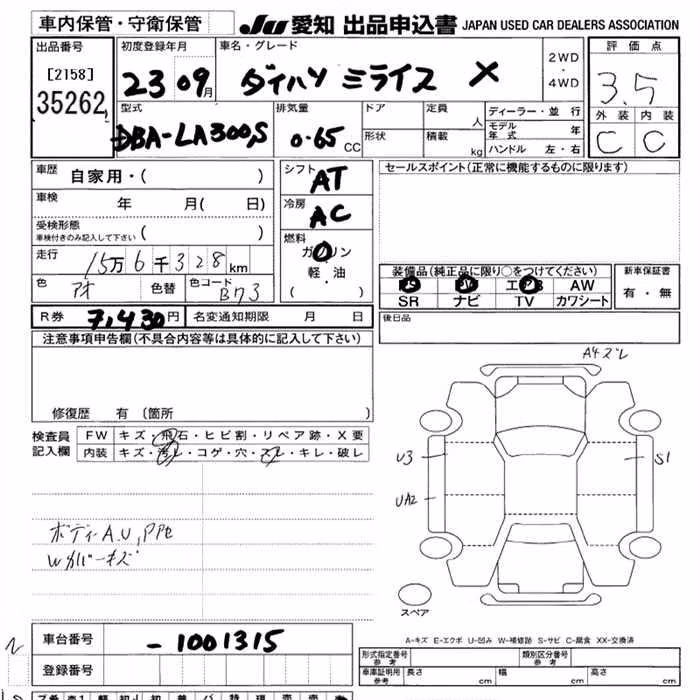 車内保管・守衛保管 JU 愛知 出品申込書 JAPAN USED CAR DEALERS ASSOCIATION
出品番号 初度登録年月 車名・グレード 2WD ・ 4WD 評価点
[2158] 23 09月 ダイハツ ミライース X 3.5
35262
型式 排気量 ドア 定員 人 ディーラー・並行 外装 内装
DBA-LA300S 0.65 CC 形状 積載 kg モデル年式 年 C C
ハンドル 左・右
車歴 自家用・( ) シフト AT セールスポイント(正常に機能するものに限ります)
車検 年 月( 日) 冷房 AC
受検形態 車検付きのみ記入して下さい ( )
燃料 ガソリン
走行 15万6千328km 軽・油 装備品(純正品に限り○をつけてください) 新車保証書
色 アオ 色替 色コード B73 ( ) PS PW エアB AW 有・無
SR ナビ TV カワシート
R券 7,430円 名変通知期限 月 日 後日品
注意事項申告欄(不具合内容等は具体的に記入して下さい)
A4ズレ
修復歴 有 〔箇所 〕
検査員 記入欄 FW キズ・飛石・ヒビ割・リペア跡・X要
内装 キズ・汚レ・コゲ・穴・スレ・キレ・破レ
U3 S1
UA2
ボディーA.U,P
Wカバーキズ
スペア
A-キズ E-エクボ U-凹み W-補修跡 S-サビ C-腐食 XX-交換済
車台番号 -1001315
形式指定番号 参考 類別区分番号 参考
登録番号 車庫証明用 参考 長さ cm 幅 cm 高さ cm